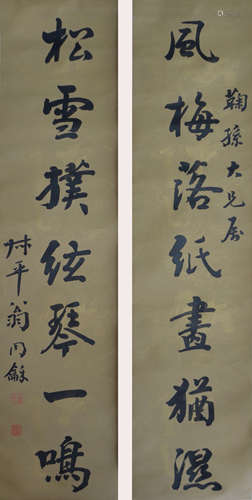 鞠孫大兄属
風梅落紙畫猶濕
松雪撲絃琴一鳴
叔平翁同龢